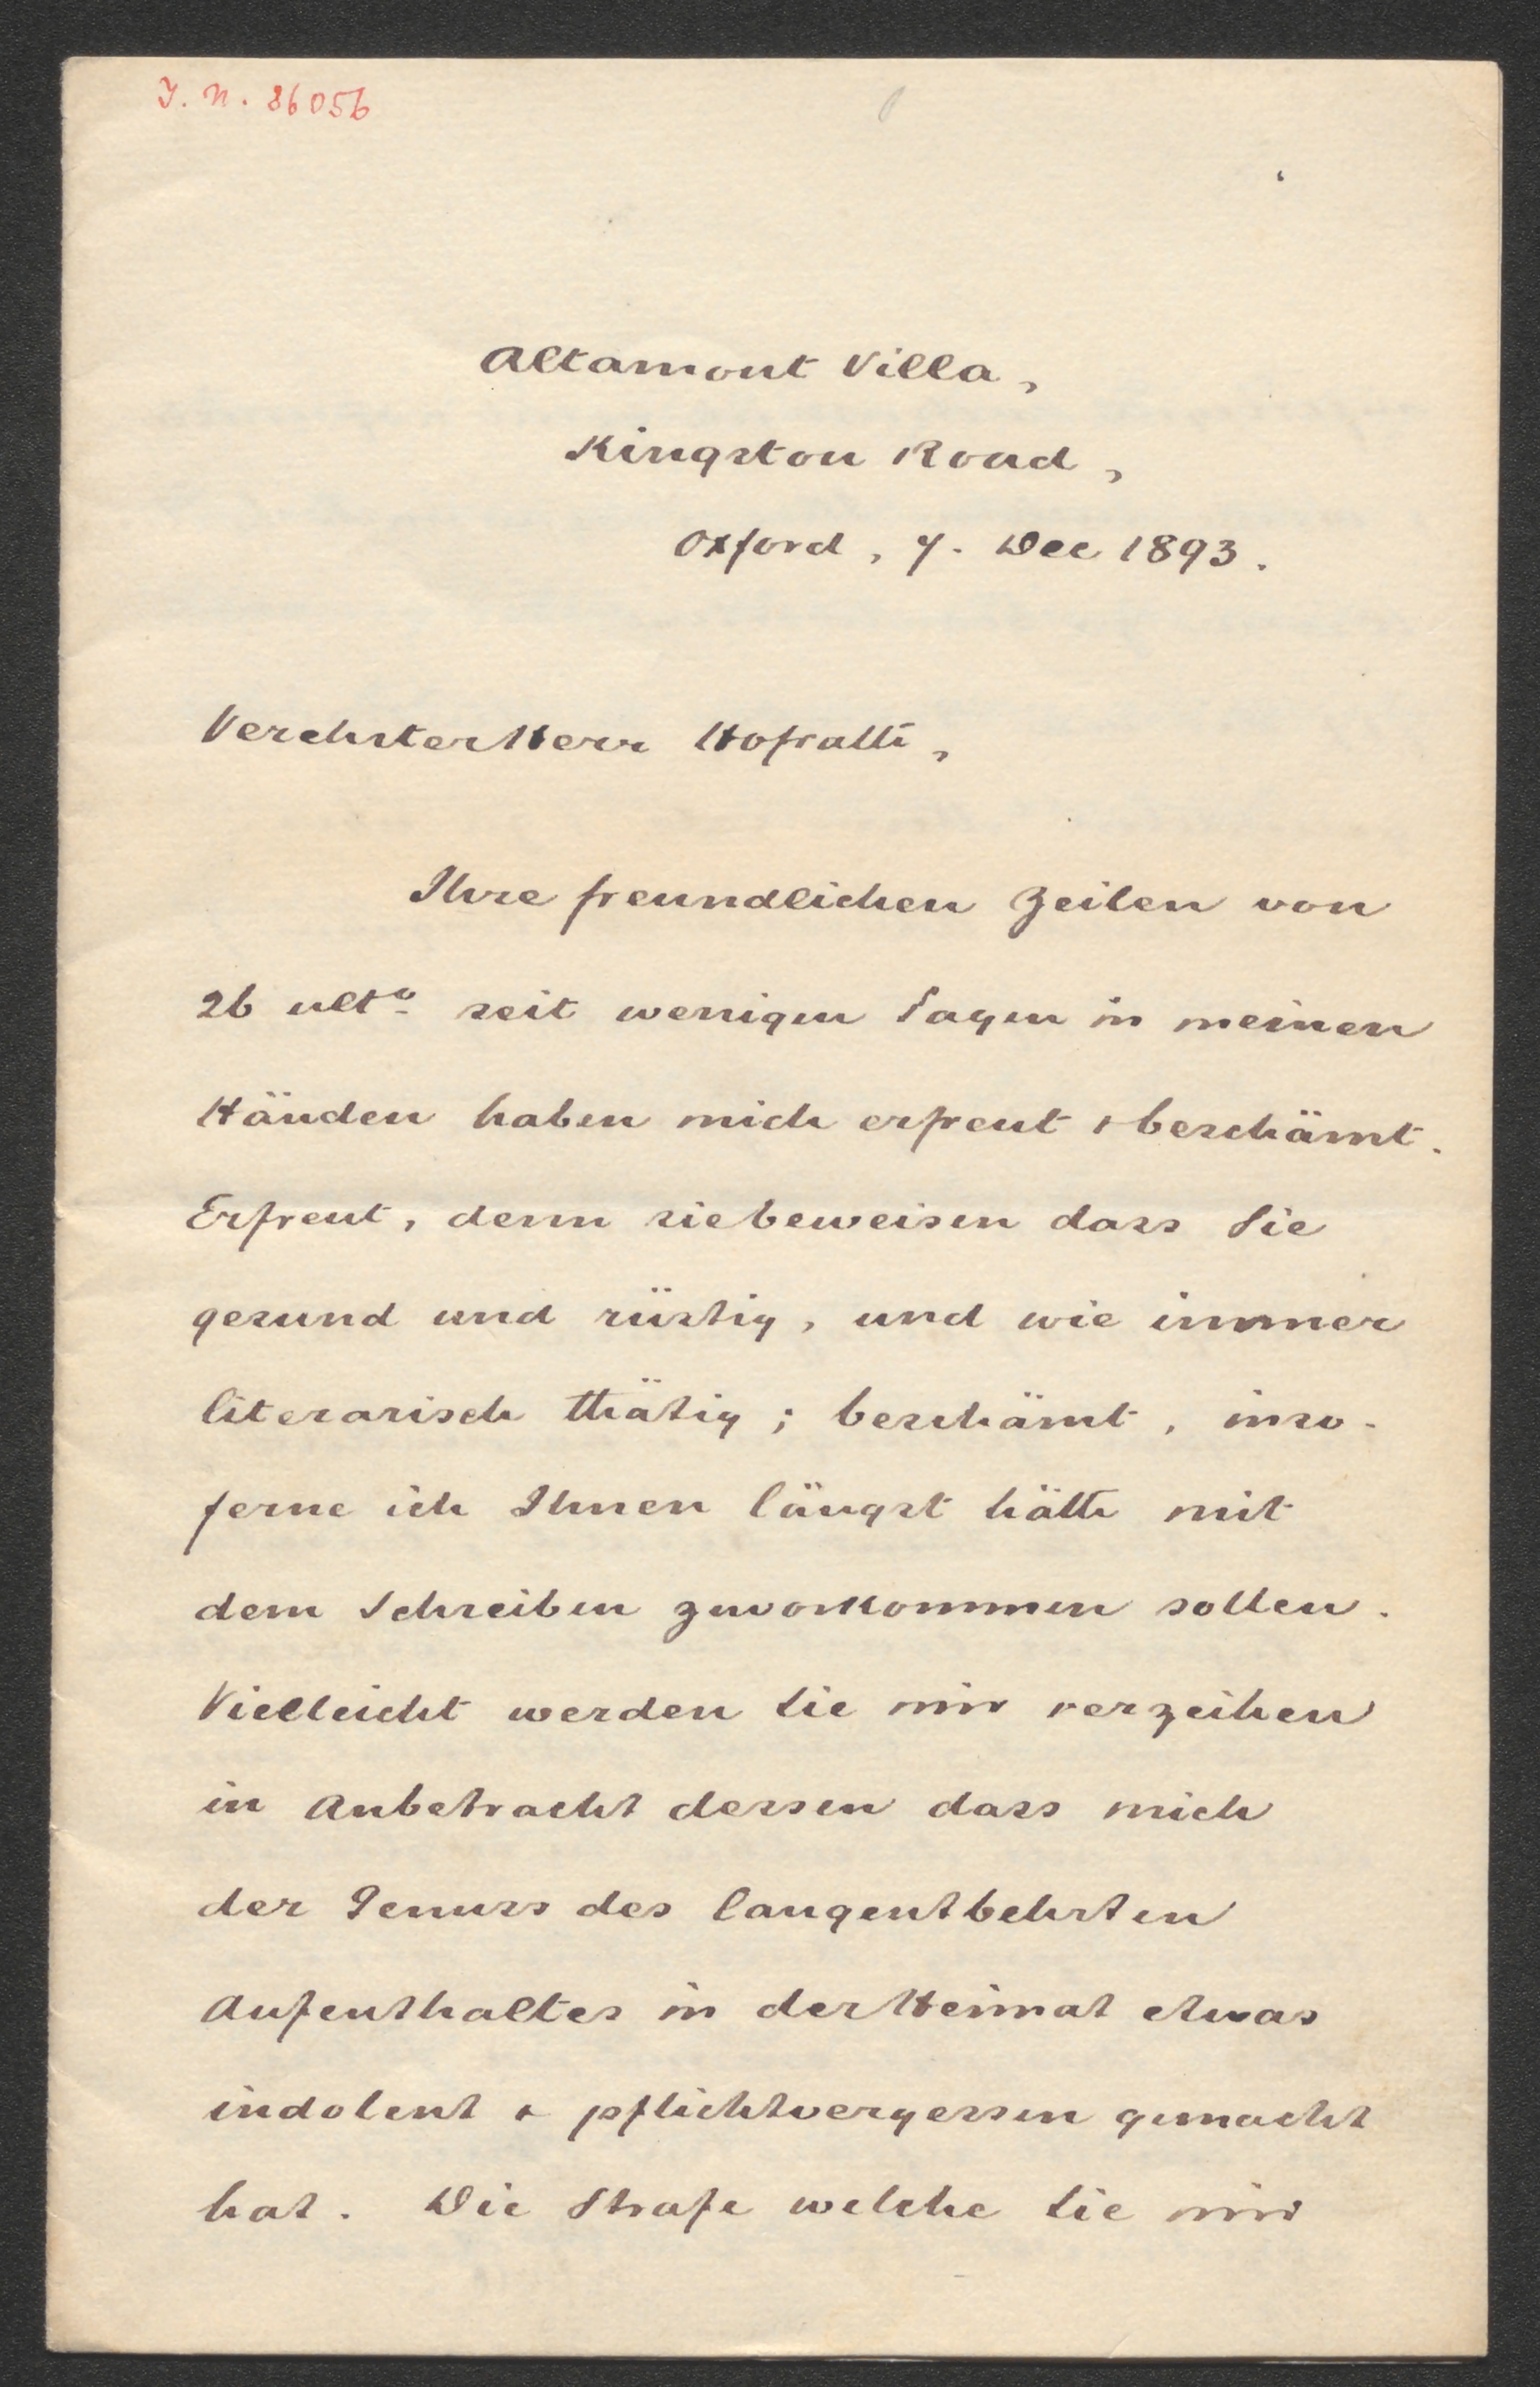 I. N. 86056
Altamont Villa,
Kingston Road,
Oxford, 7. Dec 1893.
Verehrter Herr Hofrath,
Ihre freundlichen Zeilen von
26 ulto seit wenigen Tagen in meinen
Händen haben mich erfreut & beschämt.
Erfreut, denn sie beweisen dass Sie
gesund und rüstig, und wie immer
literarisch thätig; beschämt, inso-
ferne ich Ihnen längst hätte mit
dem Schreiben zuvorkommen sollen.
Vielleicht werden Sie mir verzeihen
in Anbetracht dessen dass mich
der Genuss des langentbehrten
Aufenthaltes in der Heimat etwas
indolent & pflichtvergessen gemacht
hat. Die Strafe welche Sie mir